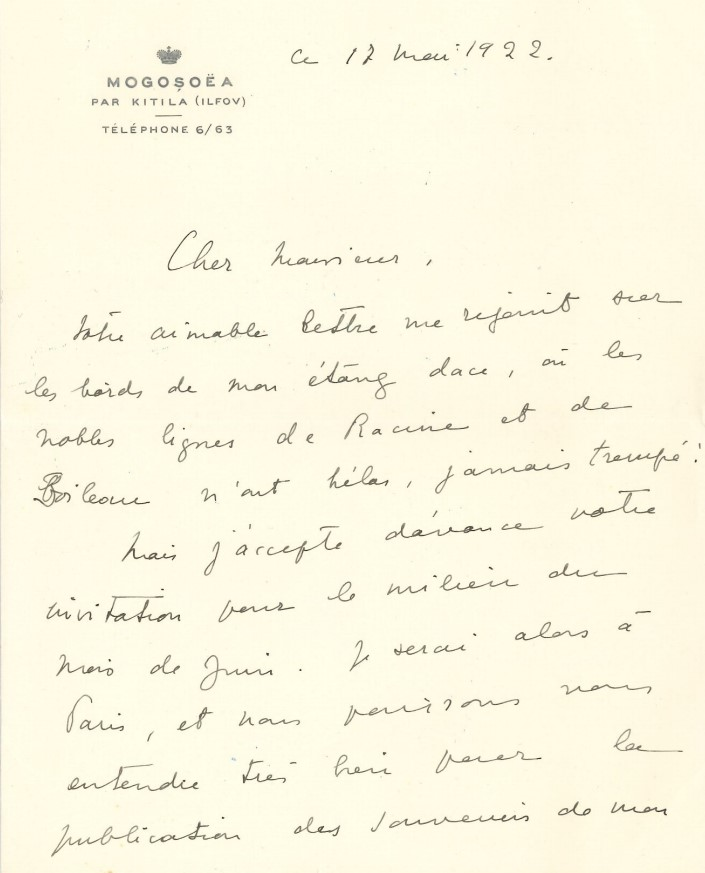 ce 17 mai 1922.
MOGOȘOËA
PAR KITILA (ILFOV)
TÉLÉPHONE 6/63
Cher Monsieur,
Votre aimable lettre me rejoint sur
les bords de mon étang dace, où les
nobles lignes de Racine et de
Boileau n'ont hélas, jamais trempé!
Mais j'accepte d'avance votre
invitation pour le milieu du
mois de Juin. Je serai alors à
Paris, et nous pourrons nous
entendre très bien pour la
publication des souvenirs de mon